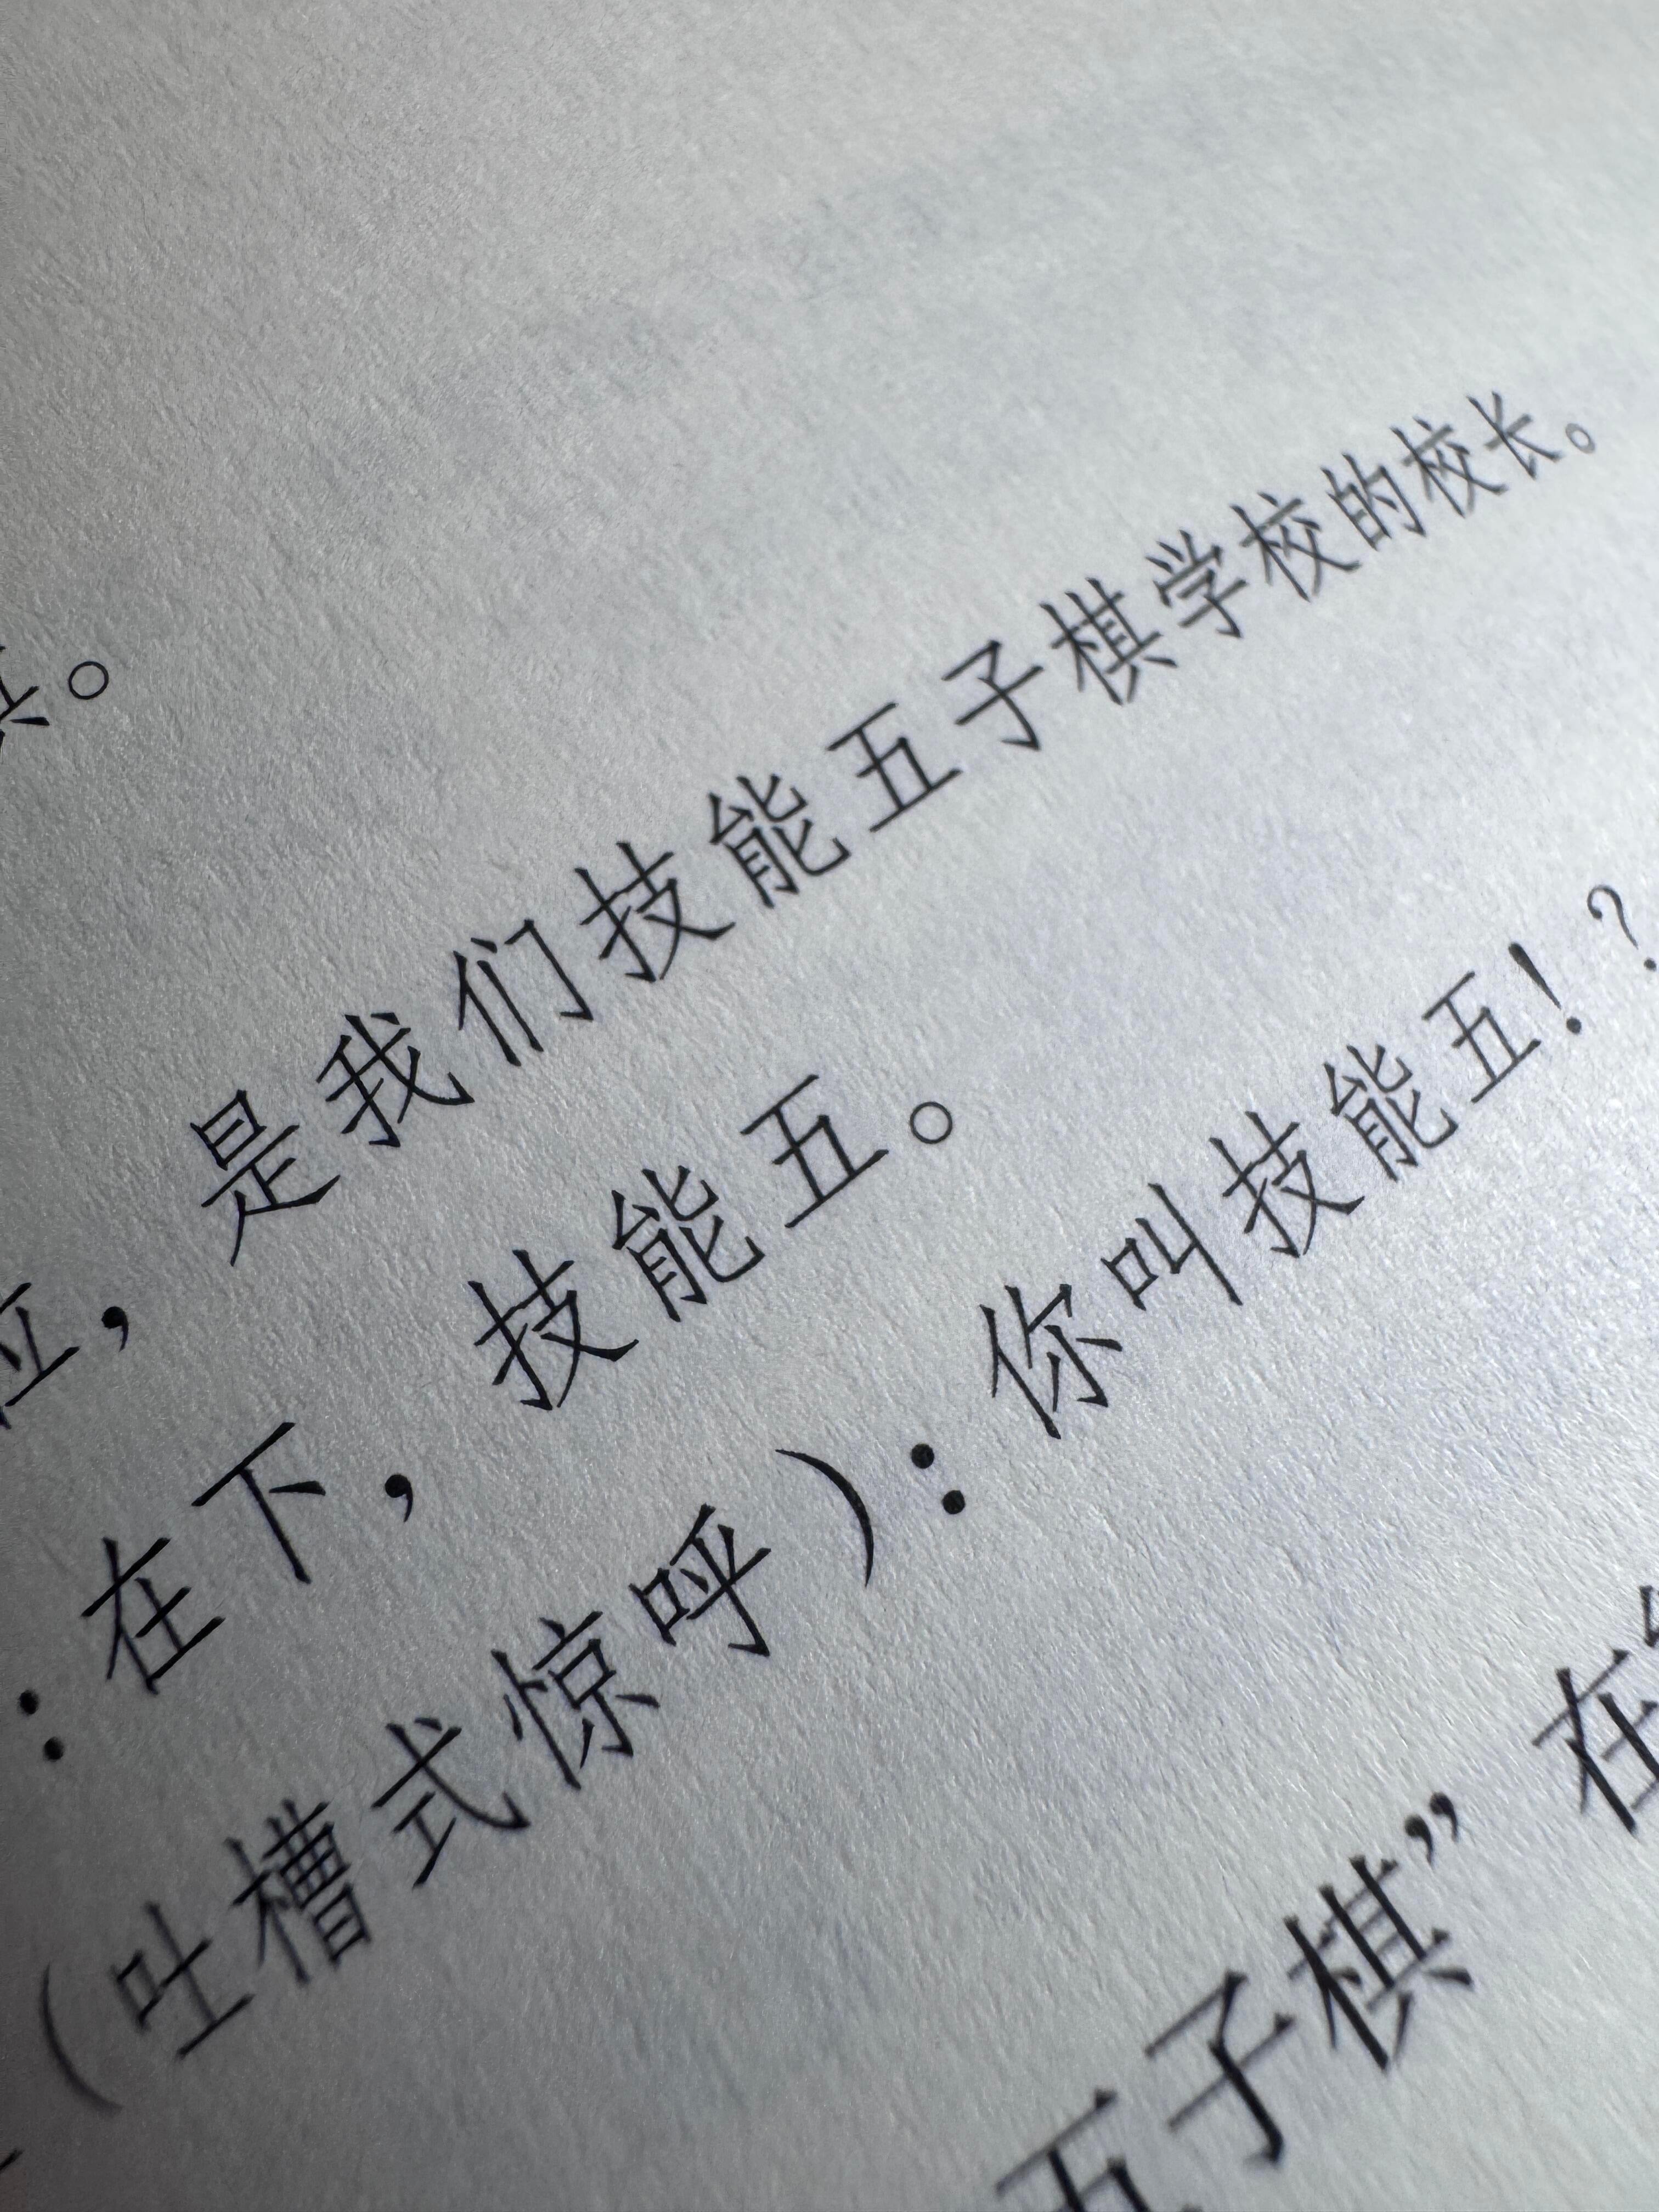 棋。
位，是我们技能五子棋学校的校长。
：在下，技能五。
（吐槽式惊呼）：你叫技能五！？
五子棋”在